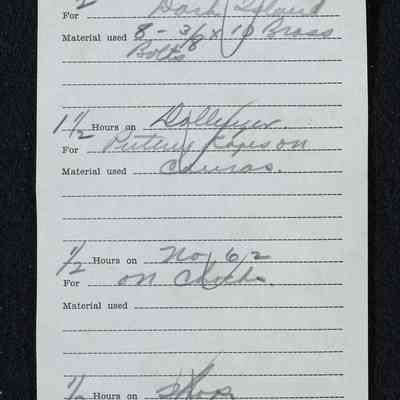 2
For Dark Island
Material used 8 - 3/8 x 10 Brass
Bolts
1 1/2 Hours on
For Puting Ropes on
Material used Canvas.
1/2 Hours on No, 62
For on Chocks.
Material used
1/2 Hours on Shop